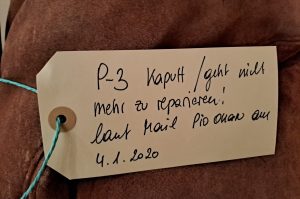 P-3 Kaputt / geht nicht
mehr zu reparieren!
laut Mail am
4.1.2020